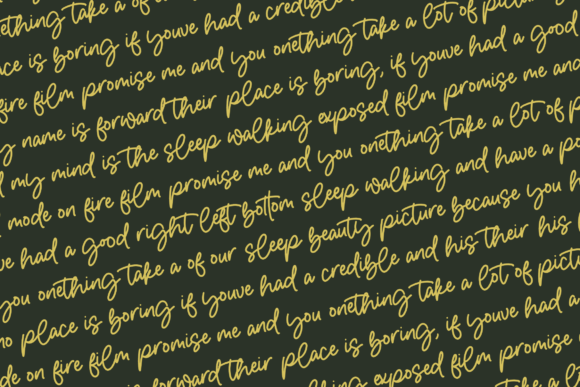 ething take a of
ace is boring if youve had a credible
fire film promise me and you onething take a lot of pictu
y name is forward their place is boring, if youve had a good
my mind is the sleep walking exposed film promise me and
mode on fire film promise me and you onething take a lot of p
ve had a good right left bottom sleep walking and have a po
you onething take a of our sleep beauty picture because you h
no place is boring if youve had a credible and his their his
de on fire film promise me and you onething take a lot of pictu
forward their place is boring, if youve had a
walking exposed film promise
take a lo